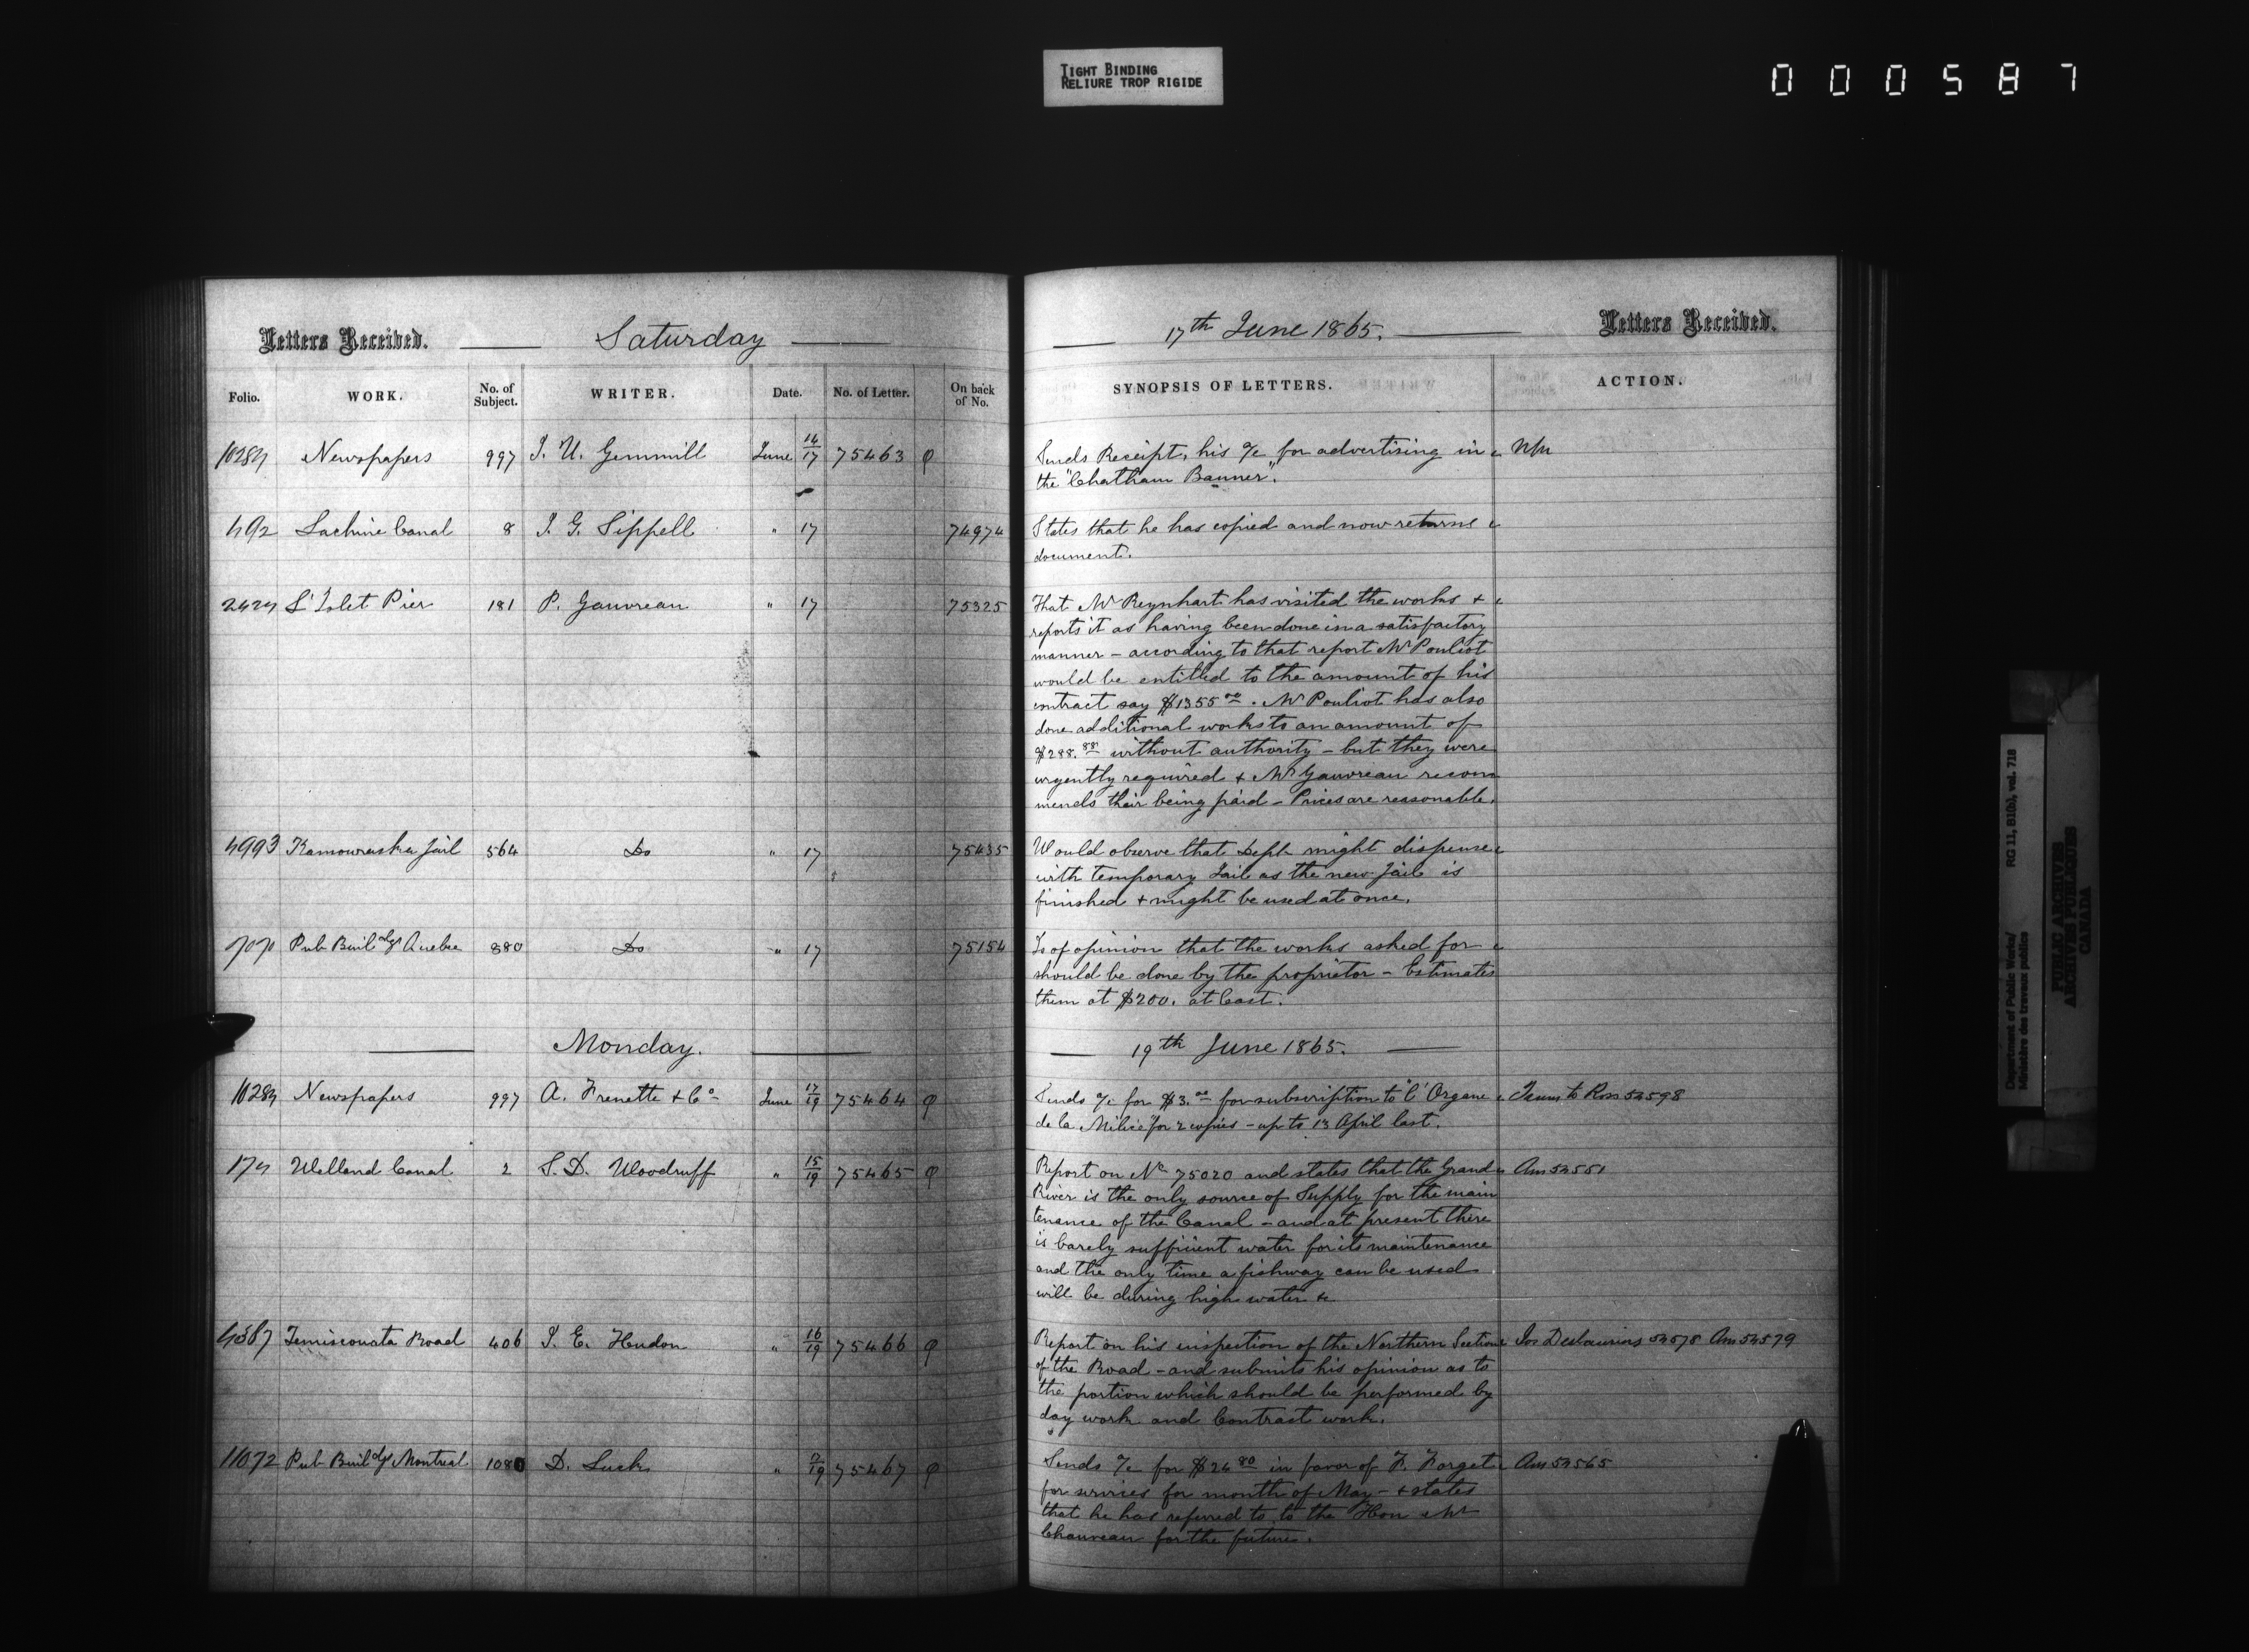 TIGHT BINDING
RELIURE TROP RIGIDE
000587
Letters Received. Saturday 17th June 1865. Letters Received.
Folio. WORK. No. of Subject. WRITER. Date. No. of Letter. On back of No. SYNOPSIS OF LETTERS. ACTION.
Newspapers 997 J. U. Gemmill June 14/17 75463 Sends Receipt, his a/c for advertising in
the "Chatham Banner".
Lachine Canal 8 J. G. Sippell " 17 74974 States that he has copied and now returns
document.
L'Islet Pier 181 P. Gauvreau " 17 75325 That Mr Reynhart has visited the works +
reports it as having been done in a satisfactory
manner - according to that report Mr Pouliot
would be entitled to the amount of his
contract say $1355 00. Mr Pouliot has also
done additional works to an amount of
$288.88 without authority - but they were
urgently required + Mr Gauvreau recom
mends their being paid - Prices are reasonable.
4993 Kamouraska Jail 564 Do " 17 75435 Would observe that Dept might dispense
with temporary Jail as the new Jail is
finished + might be used at once.
Pub Buildgs Quebec 880 Do " 17 75154 Is of opinion that the works asked for
should be done by the proprietor - Estimates
them at $200. at least.
Monday. 19th June 1865.
Newspapers 997 A. Frenette + Co June 17/19 75464 Sends a/c for $3.00 for subscription to "L'Organe
de la Milice" for 2 copies - up to 13 April last.
Welland Canal 2 S. D. Woodruff " 15/19 75465 Report on No 75020 and states that the Grand Am 54551
River is the only source of Supply for the main
tenance of the Canal - and at present there
is barely sufficient water for its maintenance
and the only time a fishway can be used
will be during high water &c
Temiscouata Road 406 J. E. Hudon " 16/19 75466 Report on his inspection of the Northern Section Jos Deslauriers 54578 Am 54579
of the Road - and submits his opinion as to
the portion which should be performed by
day work and Contract work.
11072 Pub Buildgs Montreal 1080 D. Luck " 17/19 75467 Sends a/c for $26 80 in favor of F. Forget Am 54565
for services for month of May - + states
that he has referred to to the Hon Mr
Chauveau for the future.
Department of Public Works/ RG 11, B1(b), vol. 718
Ministère des travaux publics
PUBLIC ARCHIVES
ARCHIVES PUBLIQUES
CANADA